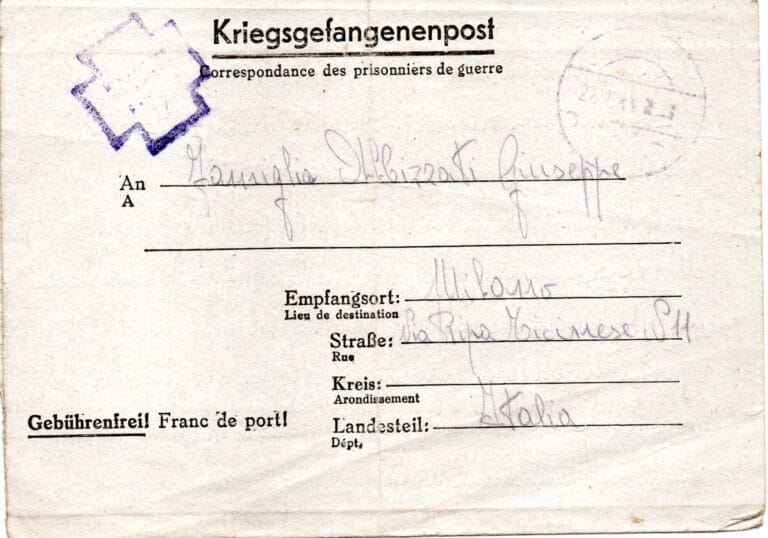 Kriegsgefangenenpost
Correspondance des prisonniers de guerre
An Famiglia Albizzati Giuseppe
A
Empfangsort: Milano
Lieu de destination
Straße: Via Ripa Ticinese
Rue
Kreis:
Arondissement
Gebührenfrei! Franc de port!
Landesteil: Italia
Dépt.